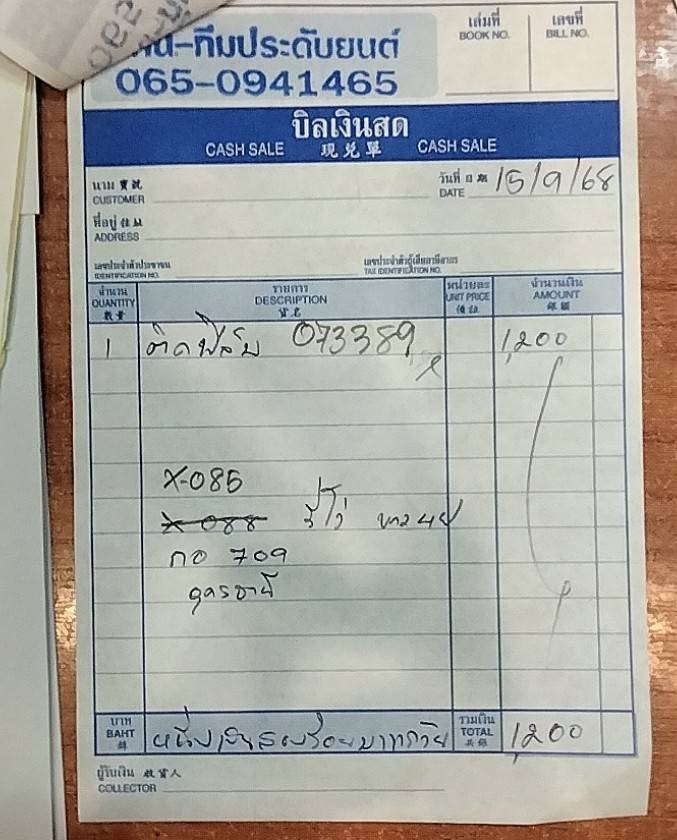 -ทีมประดับยนต์
065-0941465
เล่มที่ BOOK NO.
เลขที่ BILL NO.
บิลเงินสด
CASH SALE 現兌單 CASH SALE
นาม CUSTOMER
วันที่ DATE 15/9/68
ที่อยู่ ADDRESS
เลขประจำตัวประชาชน IDENTIFICATION NO.
เลขประจำตัวผู้เสียภาษีอากร TAX IDENTIFICATION NO.
จำนวน QUANTITY
รายการ DESCRIPTION
หน่วยละ UNIT PRICE
จำนวนเงิน AMOUNT
1 ติดฟิล์ม 073389 1,200
X-085
X-088
กอ 709
อุดรธานี
บาท BAHT
หนึ่งพันสองร้อยบาทถ้วน
รวมเงิน TOTAL 1,200
ผู้รับเงิน COLLECTOR